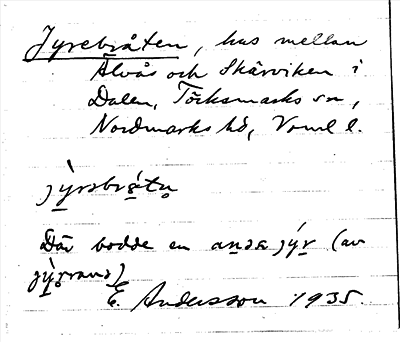 Jyrebråten, hus mellan
Älvås och Skärviken i
Dalen, Töcksmarks sn,
Nordmarks hd, Vrml l.
jỳrəbrå̀tn̥
Där bodde en
jýr (av
E. Andersson 1935.